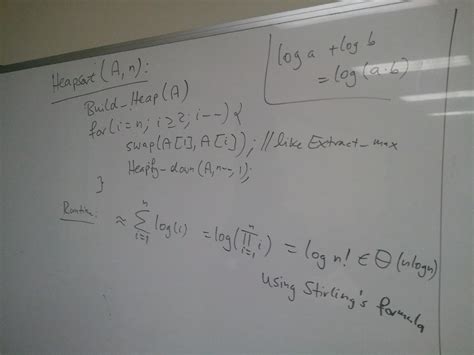 Heapsort (A, n):
Build-Heap(A)
for(i=n; i≥2; i--) {
swap(A[1], A[i]); //like Extract-max
Heapify-down(A, n--, 1);
}
Runtime: ≈ ∑_{i=1}^{n} log(i) = log(∏_{i=1}^{n} i) = log n! ∈ Θ(n log n)
using Stirling's formula
log a + log b
= log(a·b)